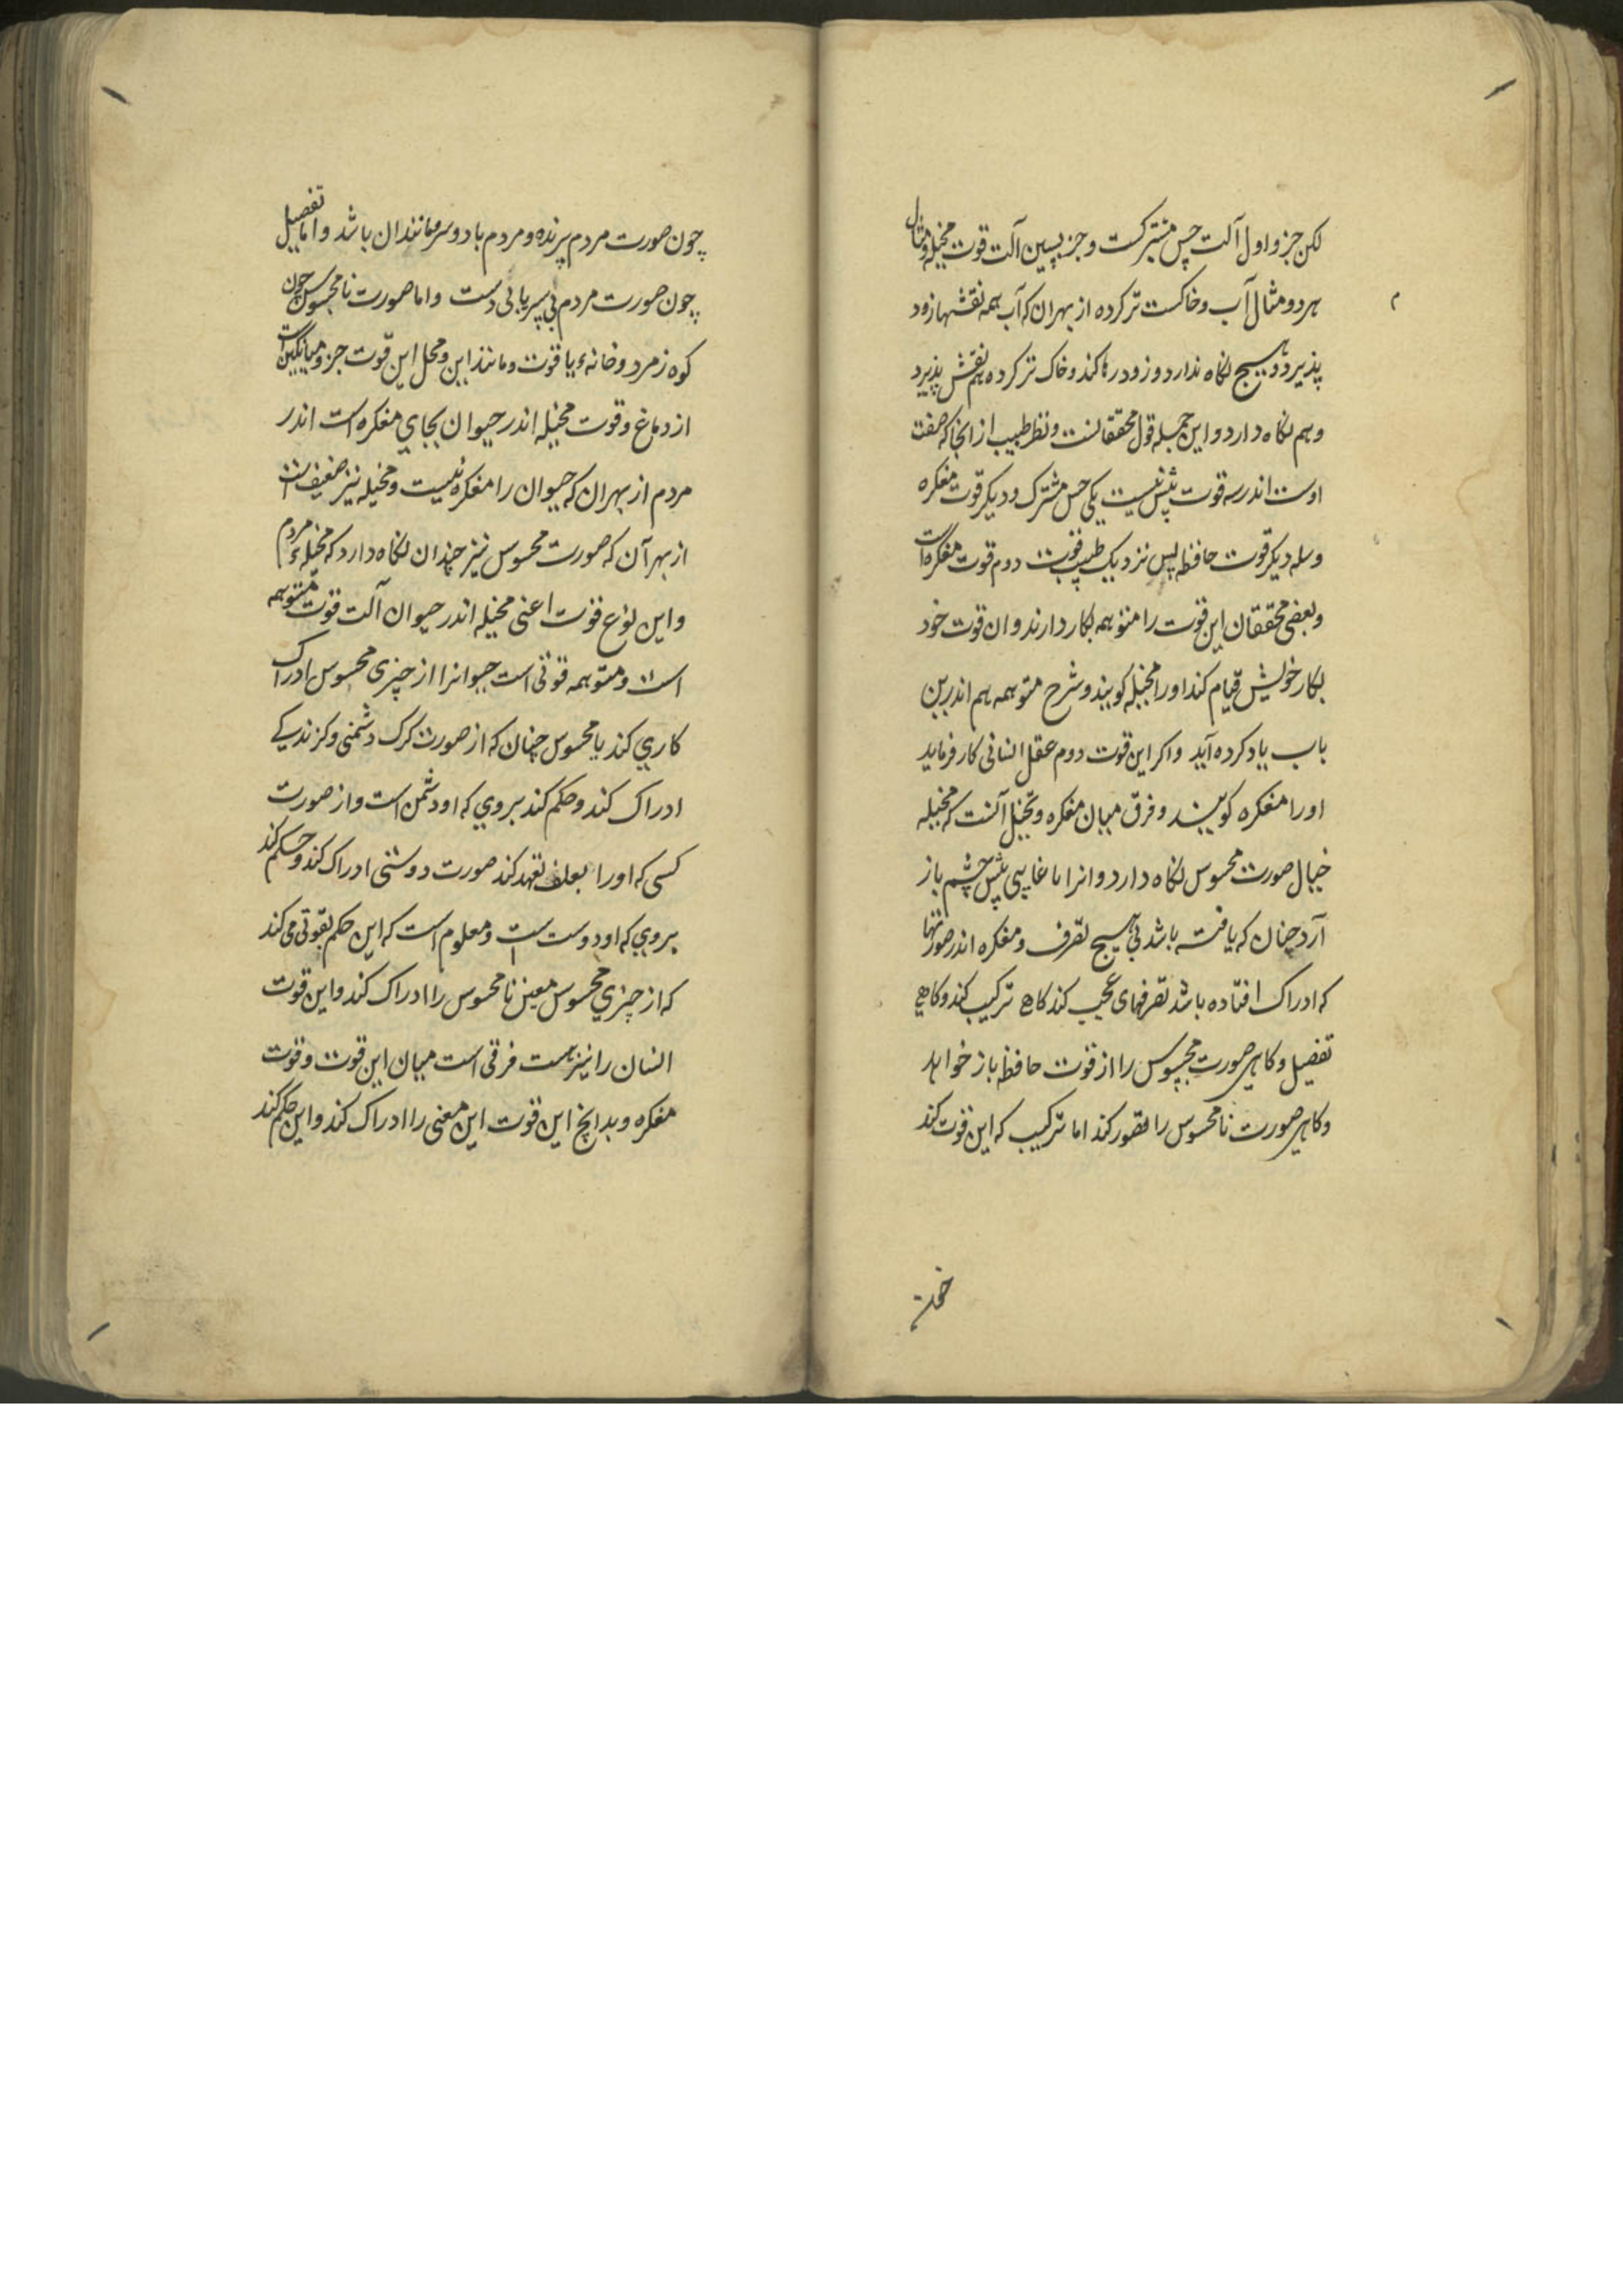 لکن جزو اول آلت حس مشترکست و جز پسین آلت قوت مخیله و مثال
هر دو مثال آب و خاکست تر کرده از بهر ان که آب همه نقشها زود
پذیرد و هیچ نکاه ندارد و زود رها کند و خاک تر کرده هم نقش پذیرد
و هم نکاه دارد و این جمله قول محققانست و نظر طبیب از انجا که صفت
اوست اندر سه قوت پیش نیست یکی حس مشترک و دیکر قوت مفکره
و سه دیکر قوت حافظه پس نزدیک طبیب قوت دوم قوت مفکره است
و بعضی محققان این قوت را متوهمه بکار دارند و ان قوت خود
بکار خویش قیام کند او را مخیله کویند و شرح متوهمه هم اندرین
باب یاد کرده آید و اکر این قوت دوم عقل انسانی کار فرماید
او را مفکره کویند و فرق میان مفکره و تخیل آنست که مخیله
خیال صورت محسوس نکاه دارد و انرا با غایبی پیش چشم باز
آرد چنان که یافته باشد بی هیچ تصرف و مفکره اندر صورتها
که ادراک افتاده باشد تصرفهای عجب کند کاهی ترکیب کند و کاهی
تفصیل و کاهی صورت محسوس را از قوت حافظه باز خواهد
و کاهی صورت نامحسوس را تصور کند اما ترکیب که این قوت کند
چون صورت مردم پرنده و مردم با دو سر و مانند ان باشد و اما تفصیل
چون صورت مردم بی سر یا بی دست و اما صورت نامحسوس چون
کوه زمرد و خانهٔ یاقوت و مانند این و محل این قوت جزو میانکین است
از دماغ و قوت مخیله اندر حیوان بجای مفکره است اندر
مردم از بهر ان که حیوان را مفکره نیست و مخیله نیز ضعیف است
از بهر آن که صورت محسوس نیز چندان نکاه دارد که مخیلهٔ مردم
و این نوع قوت اعنی مخیله اندر حیوان آلت قوت متوهمه
است و متوهمه قوتی است حیوانرا از چیزی محسوس ادراک
کاری کند یا محسوس چنان که از صورت کرک دشمنی و کزندیکی
ادراک کند و حکم کند بروی که او دشمن است و از صورت
کسی که او را بعلف تعهد کند صورت دوستی ادراک کند و حکم کند
بروی که او دوست است و معلوم است که این حکم بقوتی می کند
که از چیزی محسوس معین نامحسوس را ادراک کند و این قوت
انسان را نیز هست فرقی است میان این قوت و قوت
مفکره و بدانچ این قوت این معنی را ادراک کند و این حکم کند